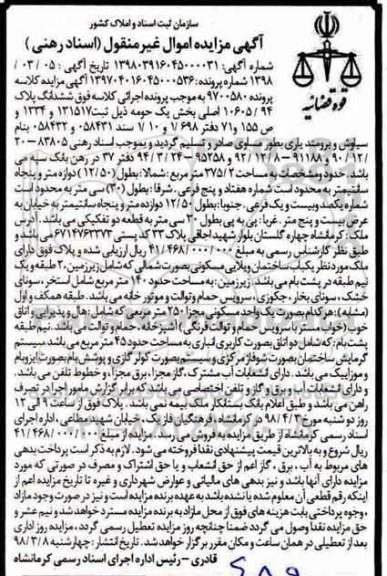 سازمان ثبت اسناد و املاک کشور
آگهی مزایده اموال غیر منقول (اسناد رهنی)
شماره آگهی: ۱۳۹۸۰۳۹۱۶۰۴۵۰۰۰۰۳۱ تاریخ آگهی: ۰۵ / ۰۳ /
۱۳۹۸ شماره پرونده: ۱۳۹۷۰۴۰۱۶۰۴۵۰۰۰۵۳۶ آگهی مزایده کلاسه
پرونده ۹۷۰۰۵۸۰ به موجب پرونده اجرائی کلاسه فوق ششدانگ پلاک
۹۴ / ۱۰۶۰۵ اصلی بخش یک حومه ذیل ثبت ۱۳۱۵۱۷ و ۱۳۳۴ و
ص ۱۵۵ و ۷۱ دفتر ۶۹۸ و ۷ و ۱۰ سند ۰۵۸۴۳۱ و ۰۵۸۴۳۲ بنام
سیاوش و برومند یاری بطور مساوی صادر و تسلیم گردید و بموجب اسناد رهنی ۸۳۸۰۵-۲۰
/ ۱۲ / ۹۰ و ۹۱۱۸۸-۸ / ۱۲ / ۹۲ و ۹۵۲۵۸-۲۴ / ۳ / ۹۴ دفتر ۳۷ در رهن بانک سپه می
باشد. حدود و مشخصات و مساحت ۳۷۵/۲ متر مربع: شمالا: بطول (۱۲/۵۰) دوازده متر و پنجاه
سانتیمتر به محدود است شماره هفتاد و پنج فرعی. شرقا: بطول (۳۰) سی متر به محدود است
شماره یکصد و بیست و یک فرعی. جنوبا: بطول (۱۲/۵۰) دوازده متر و پنجاه سانتیمتر به خیابان به
عرض بیست و پنج متر. غربا: پی به پی بطول ۳۰ سی متر به قطعه دو تفکیکی می باشد. آدرس
ملک: کرمانشاه چهاره گلستان بلوار شهید اجاقی پلاک ۳۳ کد پستی ۶۷۱۴۷۶۳۳۷۳ می باشد و
طبق نظر کارشناس رسمی به مبلغ ۴۱/۴۶۸/۰۰۰/۰۰۰ ریال ارزیابی شده و پلاک فوق دارای
ملک مورد نظر یکباب ساختمان ویلایی مسکونی بصورت شمالی که شامل زیرزمین، ۲ طبقه و یک
نیم طبقه در پشت بام می باشد. زیرزمین: به مساحت حدود ۱۴۰ متر مربع شامل استخر، سونای
خشک، سونای بخار، جکوزی، سرویس حمام و توالت و موتور خانه می باشد. طبقه همکف و اول
(مشابه): هر کدام بصورت یک واحد مسکونی مجزا ۲۵۰ متر مربعی که شامل: هال و پذیرایی و اتاق
خواب (خواب مستر با سرویس حمام و توالت فرنگی) آشپزخانه، حمام و توالت می باشد. نیم طبقه
پشت بام: که شامل دو اتاق بصورت کاربری انباری به مساحت حدود ۴۵ متر مربع می باشد سیستم
گرمایش ساختمان بصورت شوفاژ مرکزی و سیستم بصورت کولر گازی و پوشش بام بصورت ایزوبام
و موزاییک می باشد. دارای انشعابات آب مشترک، گاز مجزا، برق مجزا، و خطوط تلفن می باشد.
و دارای انشعابات آب و برق و گاز و تلفن اختصاصی می باشد که برابر گزارش مامور اجرا در تصرف
راهن می باشد و طبق اعلام بانک بستانکار ملک بیمه می باشد. پلاک فوق از ساعت ۹ الی ۱۲
روز دو شنبه مورخ ۹۸/۴/۳ در کرمانشاه فرهنگیان فاز یک، خیابان شهید مطاعی، اداره اجرای
اسناد رسمی کرمانشاه از طریق مزایده به فروش می رسد. مزایده از مبلغ ۴۱/۴۶۸/۰۰۰/۰۰۰
ریال شروع و به بالاترین قیمت پیشنهادی نقدا فروخته می شود. لازم به ذکر است پرداخت بدهی
های مربوط به آب، برق، گاز اعم از حق انشعاب و یا حق اشتراک و مصرف در صورتی که مورد
مزایده دارای آنها باشد و نیز بدهی های مالیاتی و عوارض شهرداری و غیره تا تاریخ مزایده اعم از
اینکه رقم قطعی آن معلوم شده یا نشده باشد به عهده برنده مزایده است و نیز در صورت وجود مازاد
، وجوه پرداختی بابت هزینه های فوق از محل مازاد به برنده مزایده مسترد خواهد شد و نیم عشر و
حق مزایده نقدا وصول می گردد ضمنا چنانچه روز مزایده تعطیل رسمی گردد، مزایده روز اداری
بعد از تعطیلی در همان ساعت و مکان مقرر برگزار خواهد شد. تاریخ انتشار: چهارشنبه ۹۸/۳/۸
قادری - رئیس اداره اجرای اسناد رسمی کرمانشاه
قوه قضائیه